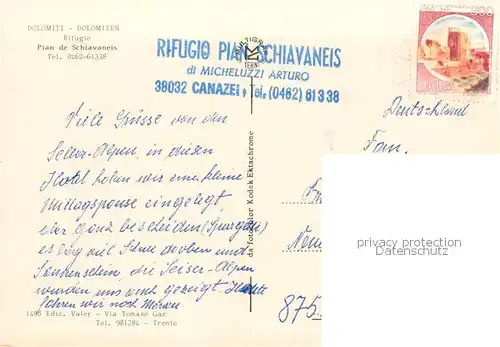 DOLOMITI - DOLOMITEN
Rifugio
Pian de Schiavaneis
Tel. 0462-61338
RIFUGIO PIAN SCHIAVANEIS
di MICHELUZZI ARTURO
38032 CANAZEI, Tel. (0462) 61338
Deutschland
Fam.
Viele Grüsse von den
Seller-Alpen, in diesen
Hotel haben wir eine kleine
Mittagspause eingelegt
ganz bescheiden
es lag viel Schnee droben und
Sonnenschein, die Seiser-Alpen
wurden uns auch gezeigt.
fahren wir nach Meran
875
da fotocolor Kodak Ektachrome
privacy protection
Datenschutz
1498 Ediz. Valer - Via Tomaso Gar
Tel. 981784 - Trento